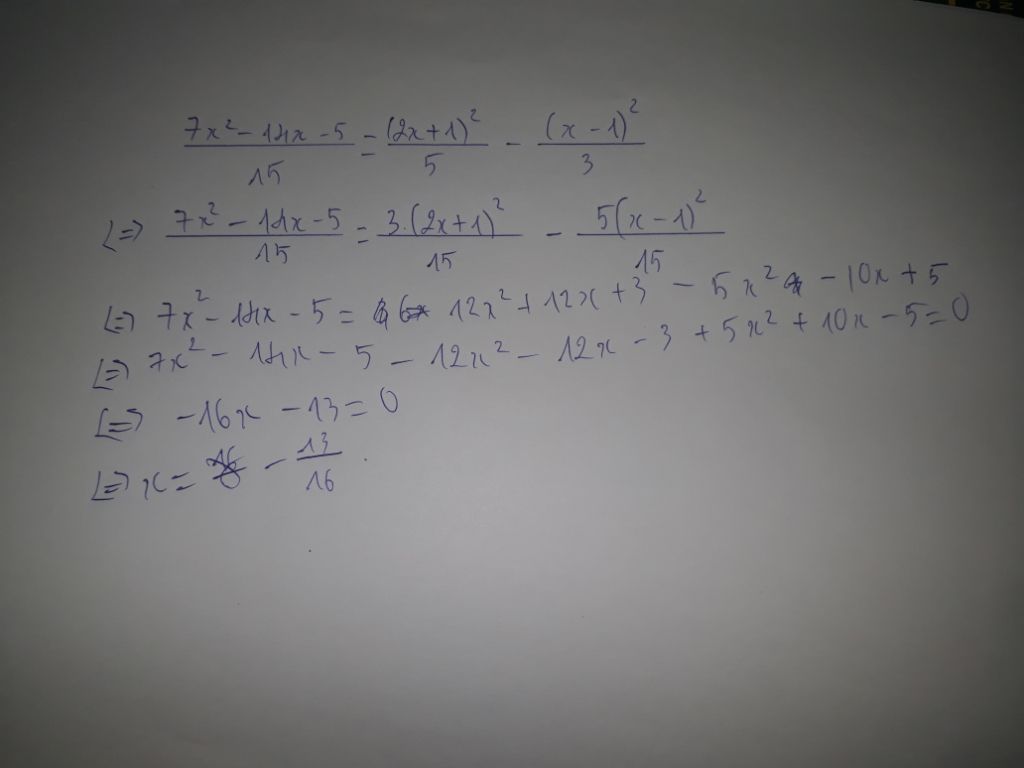 (7x² - 14x - 5)/15 = (2x+1)²/5 - (x-1)²/3
<=> (7x² - 14x - 5)/15 = 3.(2x+1)²/15 - 5(x-1)²/15
<=> 7x² - 14x - 5 = 12x² + 12x + 3 - 5x² - 10x + 5
<=> 7x² - 14x - 5 - 12x² - 12x - 3 + 5x² + 10x - 5 = 0
<=> -16x - 13 = 0
<=> x = - 13/16 .